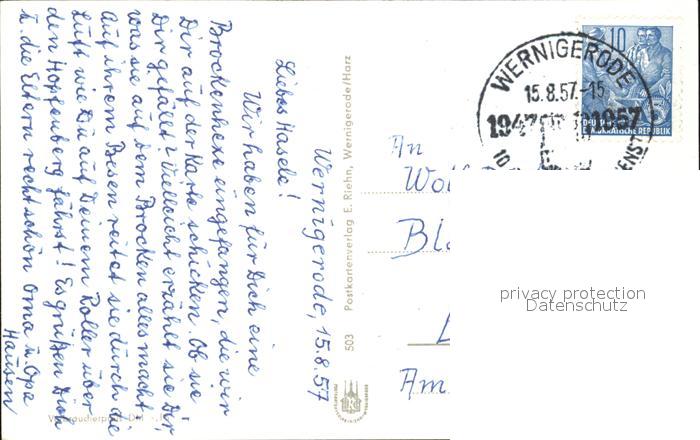 Wernigerode, 15.8.57
Liebes Hasele!
Wir haben für Dich eine
Brockenhexe eingefangen, die wir
Dir auf der Karte schicken. Ob sie
Dir gefällt? Vielleicht erzählt sie Dir,
was sie auf dem Brocken alles macht.
Auf ihrem Besen reitet sie durch die
Luft wie Du auf Deinem Roller über
den Hopfenberg fährst! Es grüßen Dich
u. die Eltern recht schön Oma u. Opa
Hausen
503 Postkartenverlag E. Riehn, Wernigerode/Harz
WERNIGERODE
15.8.57.-15
1947 1957
10
DEUTSCHE
DEMOKRATISCHE REPUBLIK
An
Wol
Bl
Am
privacy protection
Datenschutz